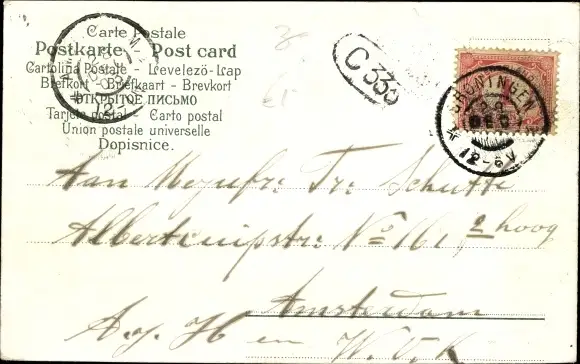 Carte Postale
Postkarte Post card
Cartolina Postale - Levelező-Lap
Brefkort - Briefkaart - Brevkort
ОТКРЫТОЕ ПИСЬМО
Tarjeta postal - Carto postal
Union postale universelle
Dopisnice.
12-
C 336
GRONINGEN
DEC
12-6V
Aan Mejufr: Tr: Schutte
Albertcuipstr: No 161, 2 hoog
Amsterdam
H en W. V. K